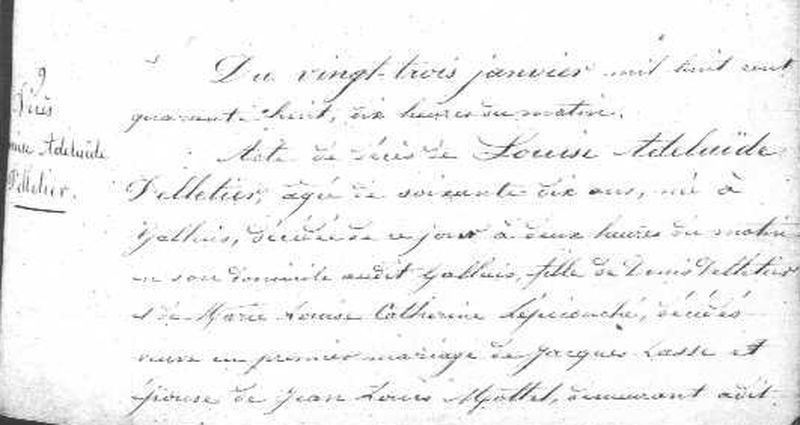 9
Décès
Adelaïde
Pelletier.
Du vingt-trois janvier mil huit cent
quarante huit, dix heures du matin.
Acte de décès de Louise Adelaïde
Pelletier, agée de soixante dix ans, née à
Galluis, décédée ce jour à deux heures du matin
en son domicile audit Galluis, fille de Denis Pelletier
et de Marie Louise Catherine décédés
veuve en premier mariage de Jacques Lasse et
épouse de Jean Louis Mottet, demeurant audit